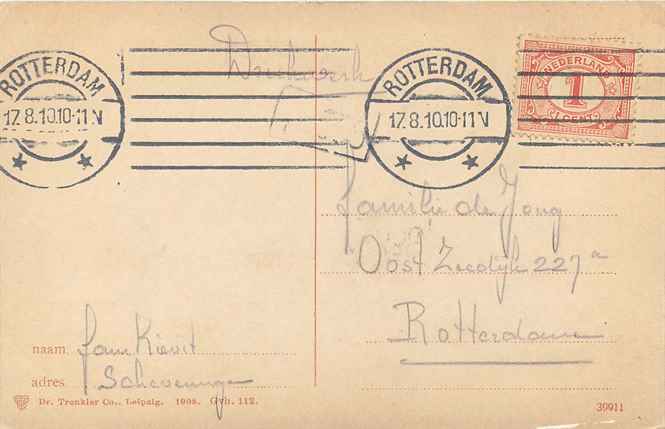 Drukwerk
ROTTERDAM
17.8.10.10-11V
ROTTERDAM
17.8.10.10-11V
NEDERLAND
1
CENT
Familie de Jong
Oost Zeedijk 227a
Rotterdam
naam Fam Kievit
adres Scheveningen
Dr. Trenkler Co., Leipzig. 1908. Gvh. 112.
39911